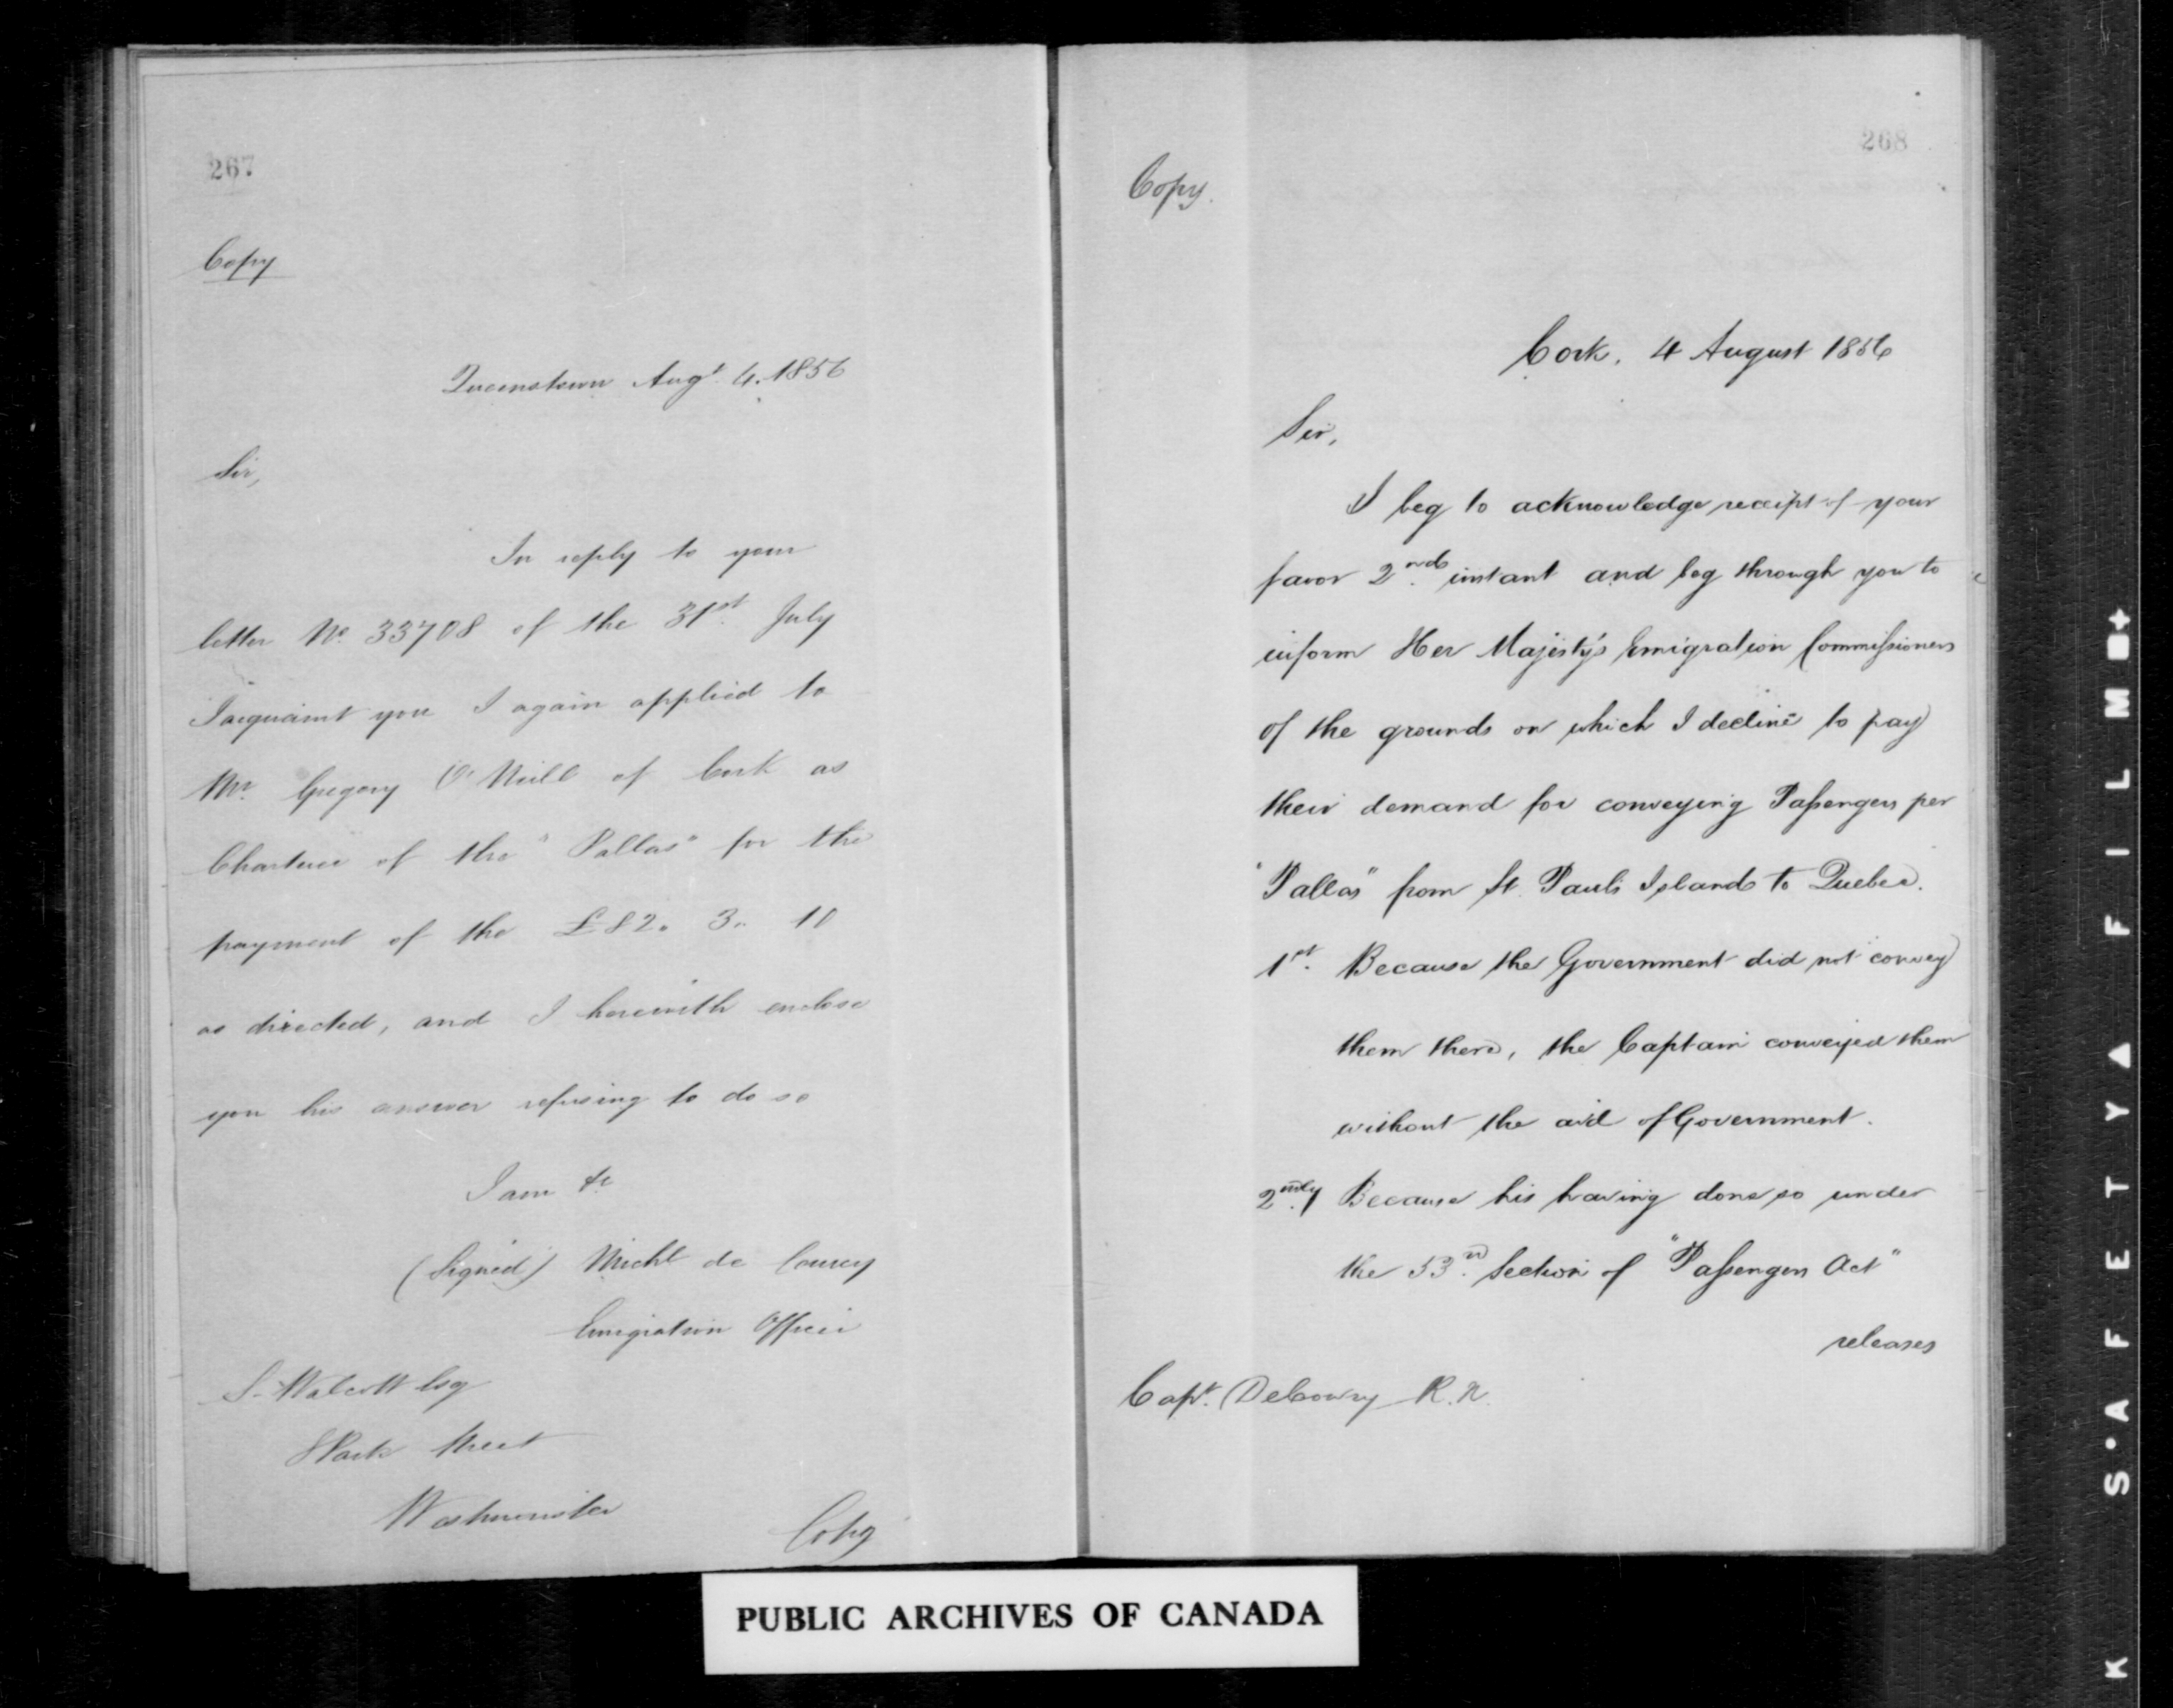 267
Copy
Queenstown Augt. 4. 1856
Sir,
In reply to your
letter No. 33708 of the 31st. July
I acquaint you I again applied to
Mr. Gregory O'Neill of Cork as
Charterer of the "Pallas" for the
payment of the £82. 3. 10
as directed, and I herewith enclose
you his answer refusing to do so
I am &c
(Signed) Michl de Courcy
Emigration Officer
S. Walcott Esq
Park Street
Westminster
Copy
268
Copy.
Cork, 4 August 1856
Sir,
I beg to acknowledge receipt of your
favor 2nd. instant and beg through you to
inform Her Majesty's Emigration Commissioners
of the grounds on which I decline to pay
their demand for conveying Passengers per
"Pallas" from St. Pauls Islands to Quebec.
1st. Because the Government did not convey
them there, the Captain conveyed them
without the aid of Government.
2ndly Because his having done so under
the 53rd. Section of "Passengers Act"
releases
Capt. DeCourcy R.N.
PUBLIC ARCHIVES OF CANADA
K SAFETY FILM